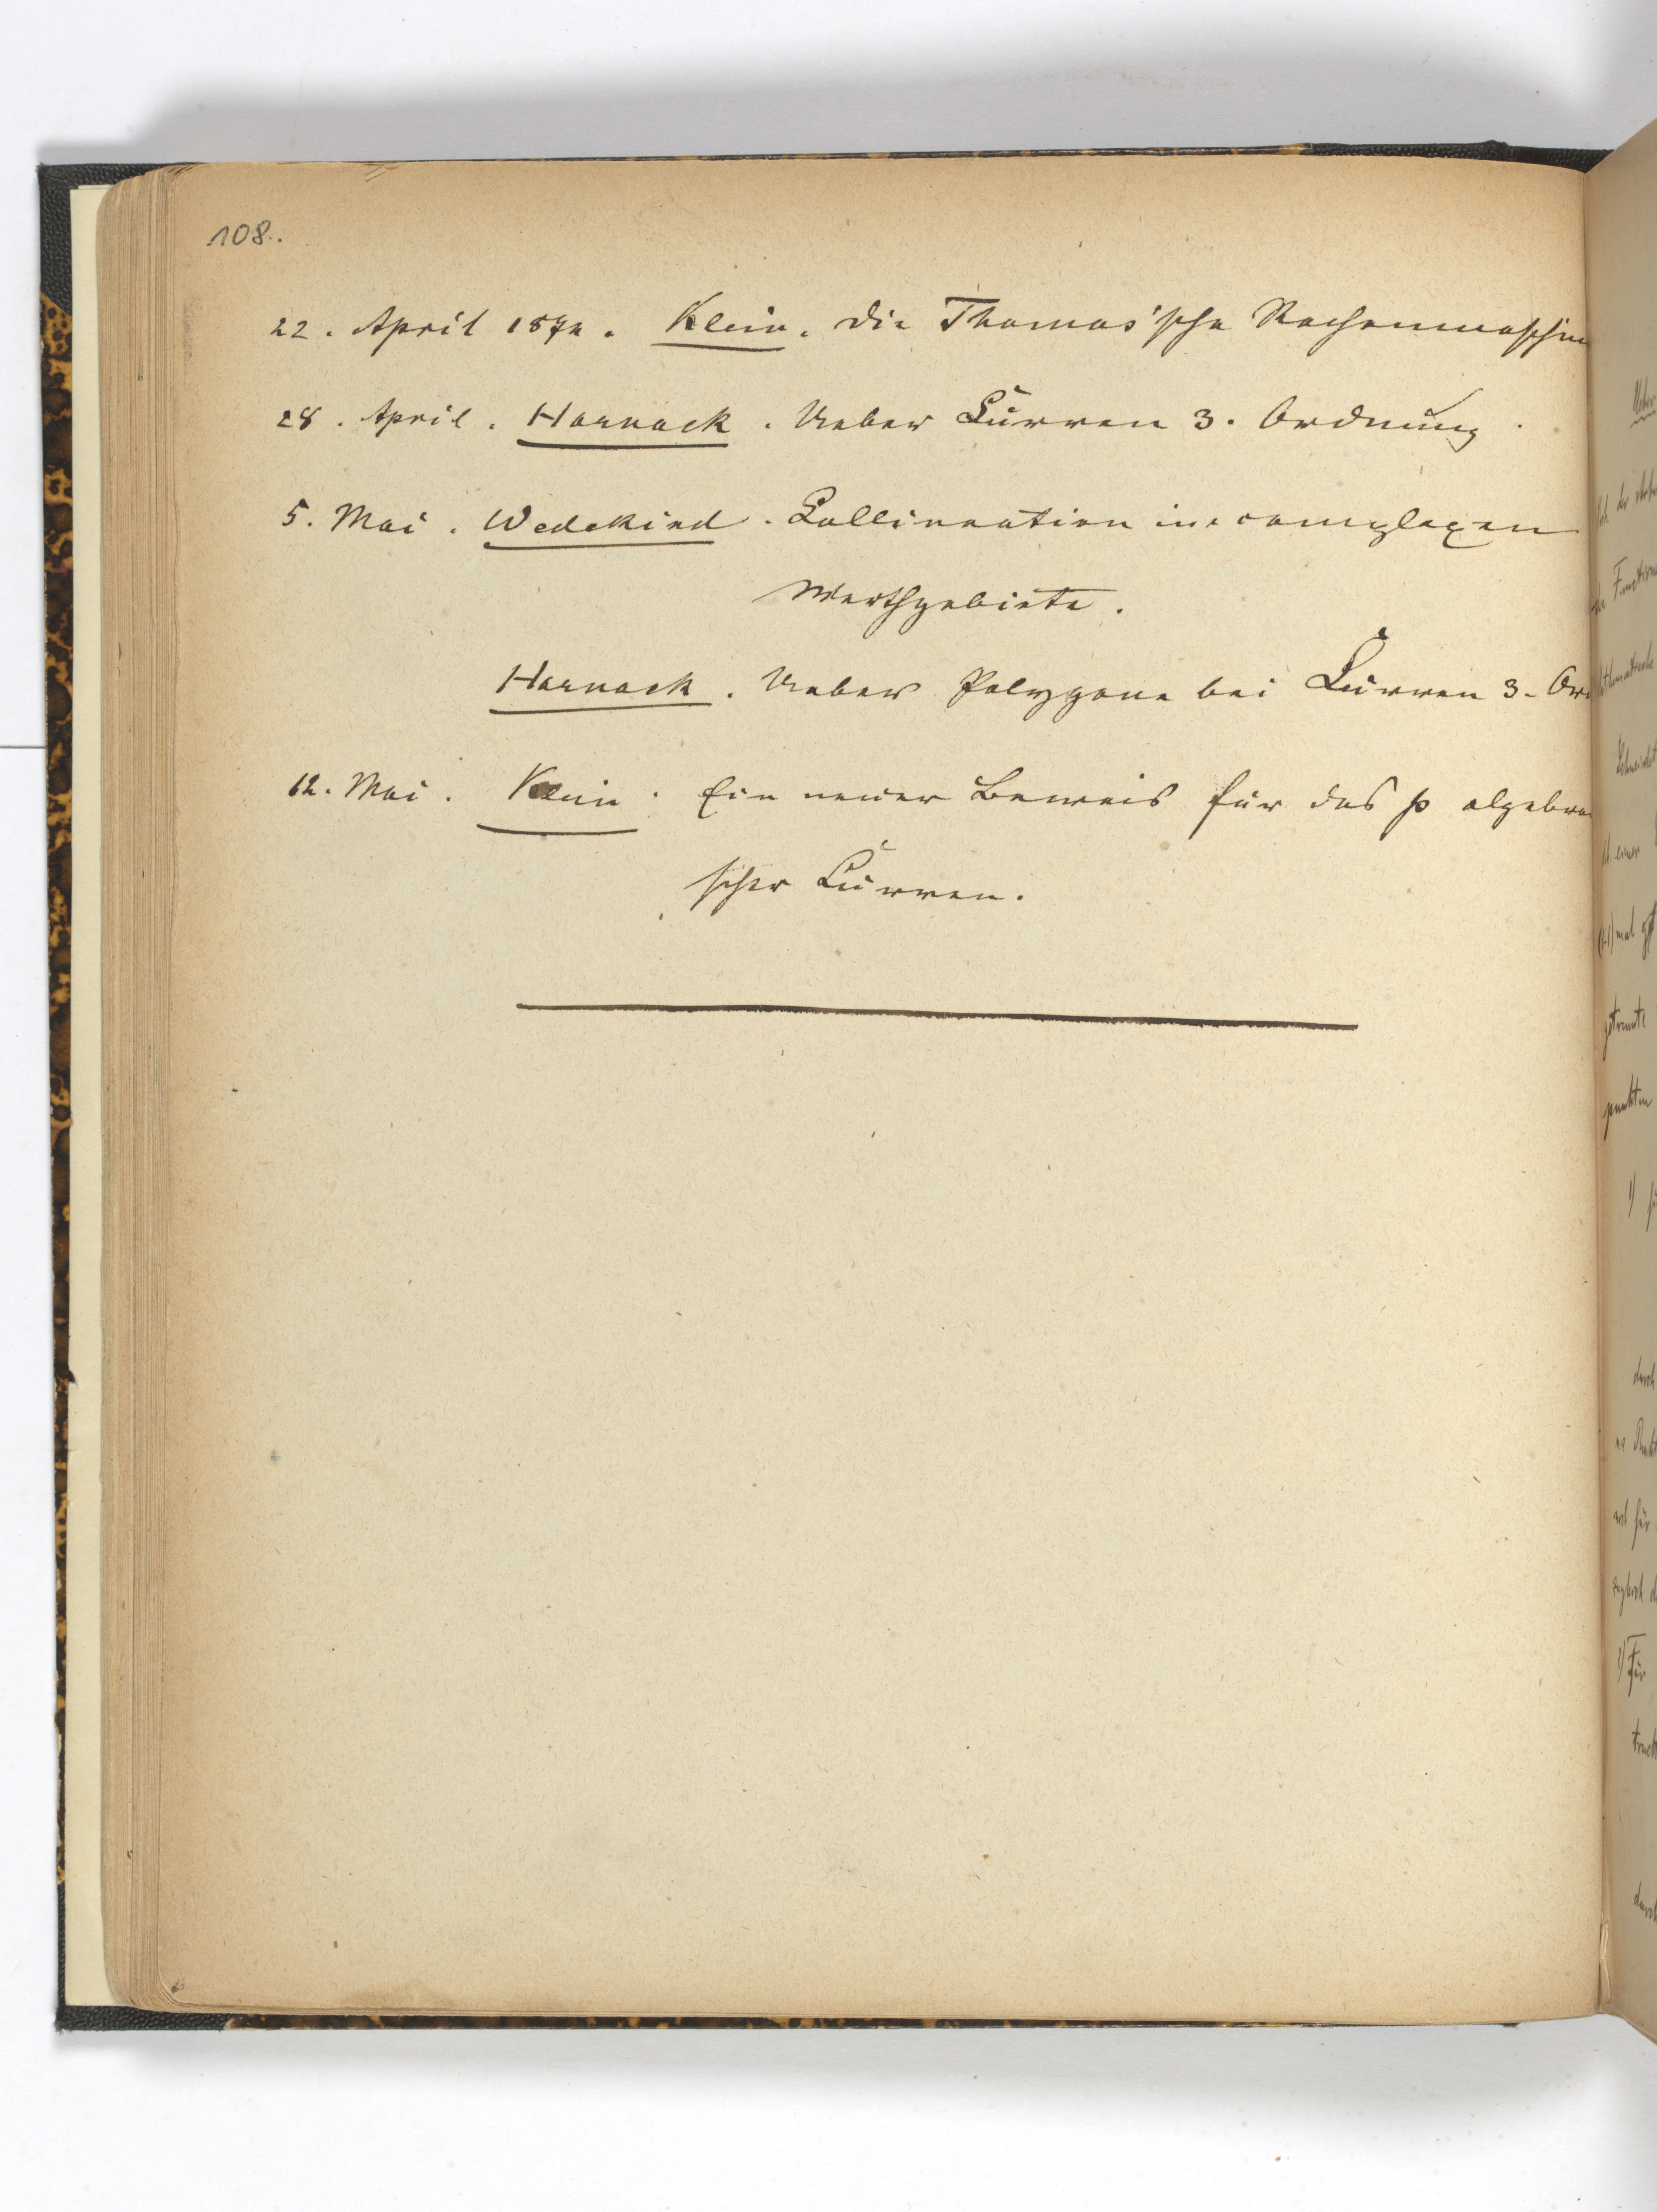 108.
22. April 1874. Klein. Die Thomas'sche Rechenmaschine
28. April. Harnack. Ueber Curven 3. Ordnung.
5. Mai. Wedekind. Collineation im complexen
Werthgebiete.
Harnack. Ueber Polygone bei Curven 3. Ord
12. Mai. Klein. Ein neuer Beweis für das p algebrai
scher Curven.